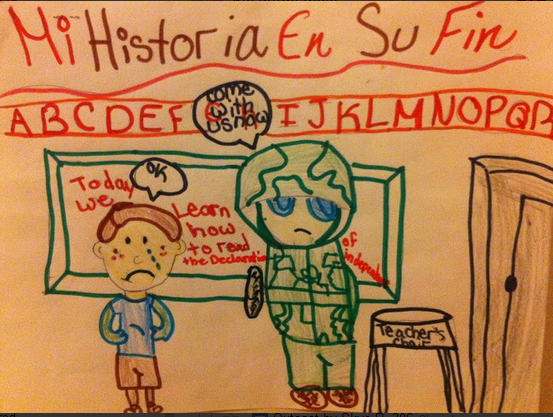 Mi Historia En Su Fin
ABCDEF
IJKLMNOPQR
come
with
us now
OK
Today
we
Learn
how
to read
the Declaration
of
independen
Teacher's
chair